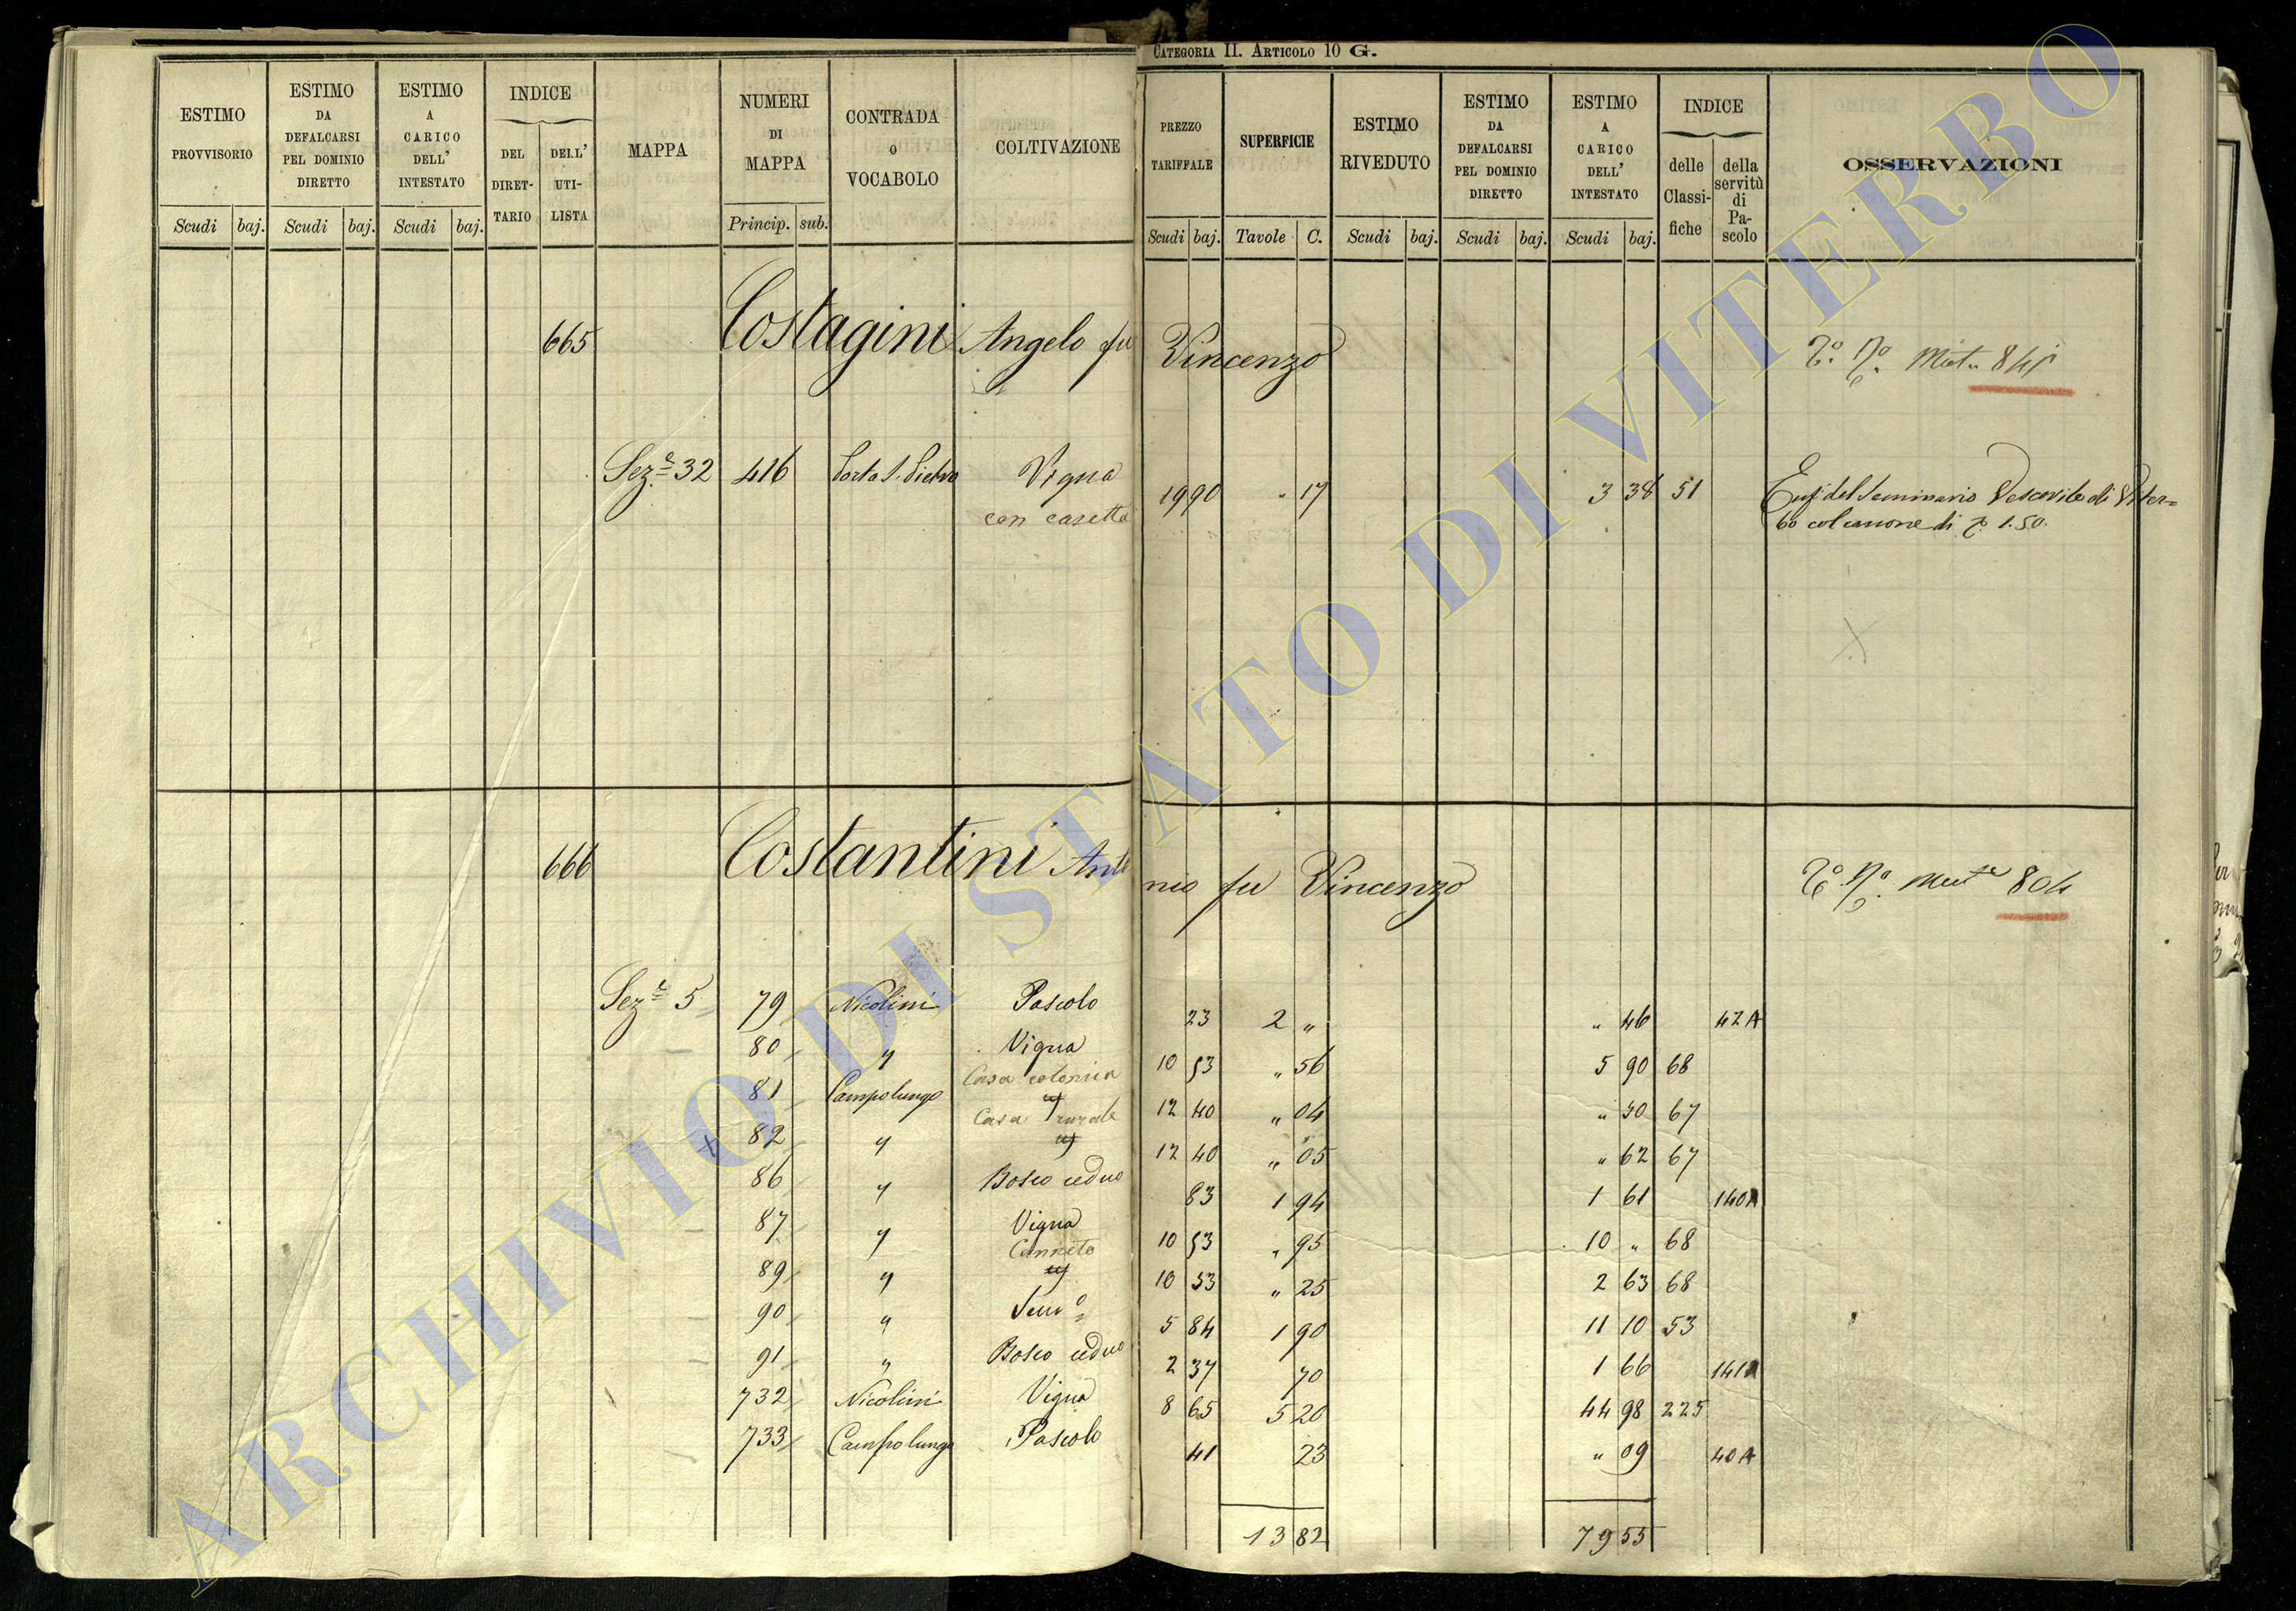 CATEGORIA II. ARTICOLO 10 G.
ESTIMO PROVVISORIO | ESTIMO DA DEFALCARSI PEL DOMINIO DIRETTO | ESTIMO A CARICO DELL' INTESTATO | INDICE DEL DIRETTARIO | DELL' UTILISTA | MAPPA | NUMERI DI MAPPA | CONTRADA O VOCABOLO | COLTIVAZIONE | PREZZO TARIFFALE | SUPERFICIE | ESTIMO RIVEDUTO | ESTIMO DA DEFALCARSI PEL DOMINIO DIRETTO | ESTIMO A CARICO DELL' INTESTATO | INDICE delle Classifiche | della servitù di Pascolo | OSSERVAZIONI
Scudi baj. Scudi baj. Scudi baj. Princip. sub. Scudi baj. Tavole C. Scudi baj. Scudi baj. Scudi baj.
665 Costagini Angelo fu Vincenzo
Sez.e 32 416 Porta S. Pietro Vigna con casetta 19 90 " 17 3 38 51 Enf. del Seminario Vescovile di Viter=
bo col canone di 1.50.
666 Costantini Antonio fu Vincenzo 804
Sez.e 5 79 Nicolini Pascolo 23 2 " " 46 42A
80 " Vigna 10 53 " 56 5 90 68
81 Campolungo Casa colonica 12 40 " 04 " 50 67
x 82 " Casa rurale 12 40 " 05 " 62 67
86 " Bosco ceduo 83 1 94 1 61 140A
87 " Vigna 10 53 " 95 10 " 68
89 " Canneto 10 53 " 25 2 63 68
90 " Sem.o 5 84 1 90 11 10 53
91 " Bosco ceduo 2 37 70 1 66 141A
732 Nicolini Vigna 8 65 5 20 44 98 225
733 Campolungo Pascolo 41 23 " 09 40A
13 82 79 55
ARCHIVIO DI STATO DI VITERBO